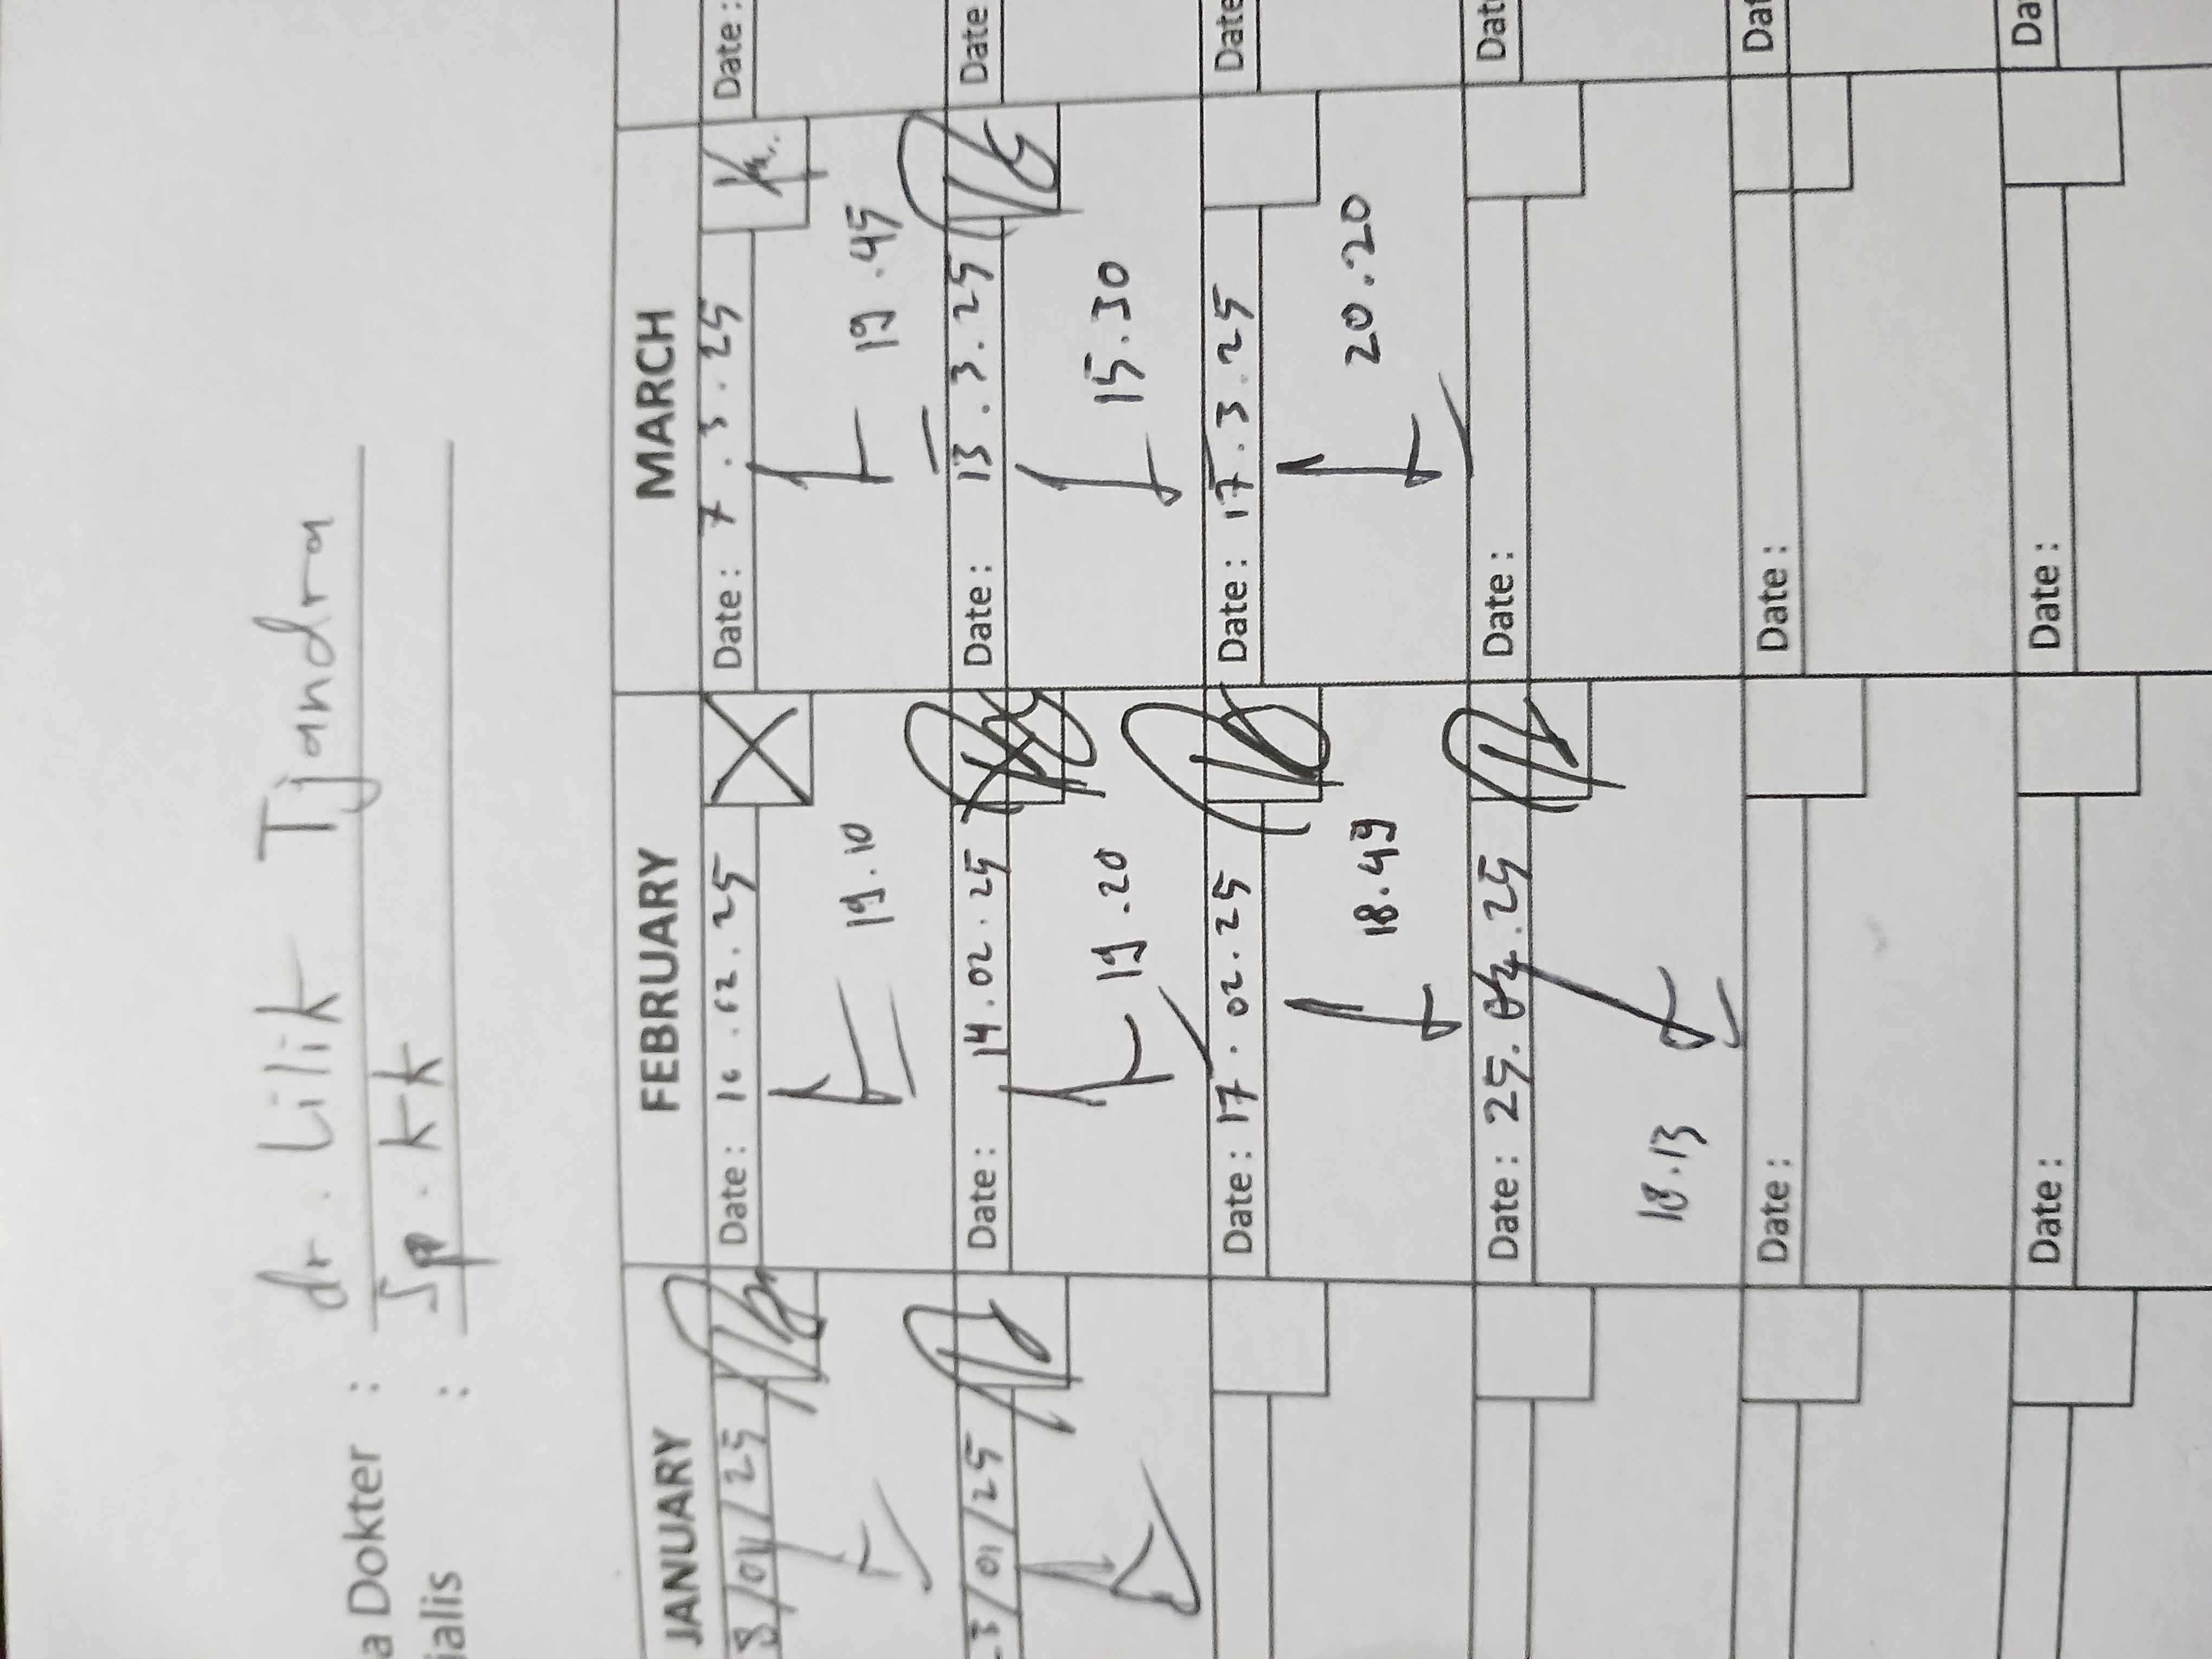 a Dokter : dr. Lilik Tjandra
ialis : Sp. KK
JANUARY FEBRUARY MARCH
8/01/25 Date: 10.02.25 Date: 7.3.25 Date:
19.10 19.45
3/01/25 Date: 14.02.25 Date: 13.3.25 Date
19.20 15.30
Date: 17.02.25 Date: 17.3.25 Date
18.49 20.20
Date: 25. .25 Date: Dat
18.13
Date: Date: Dat
Date: Date: Da